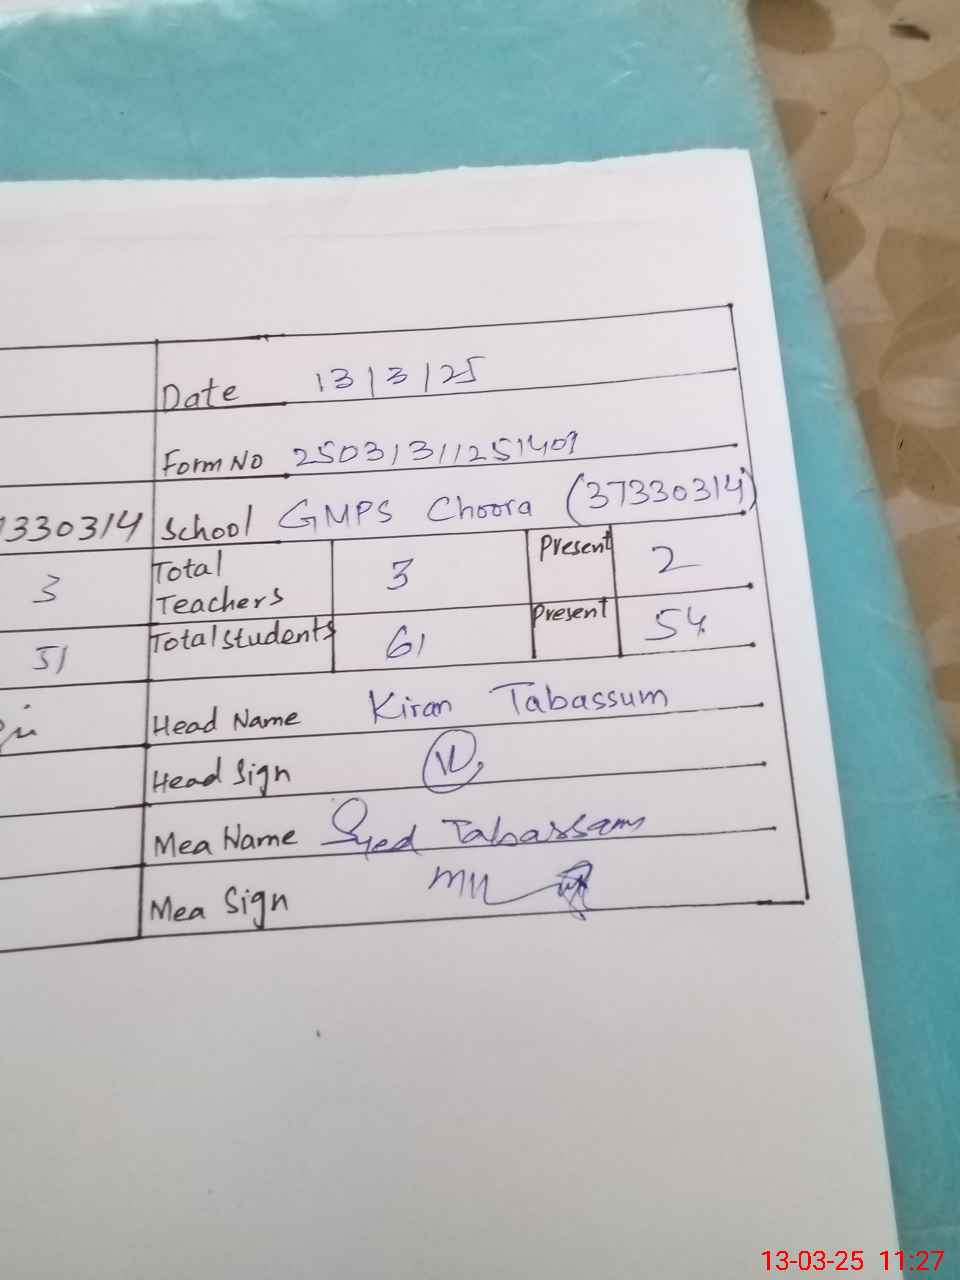 Date 13/3/25
Form No 25031311251409
330314 School GMPS Choora (37330314)
3 Total Teachers 3 Present 2
51 Total students 61 Present 54
Head Name Kiran Tabassum
Head Sign
Mea Name Syed Tabassam
Mea Sign
13-03-25 11:27